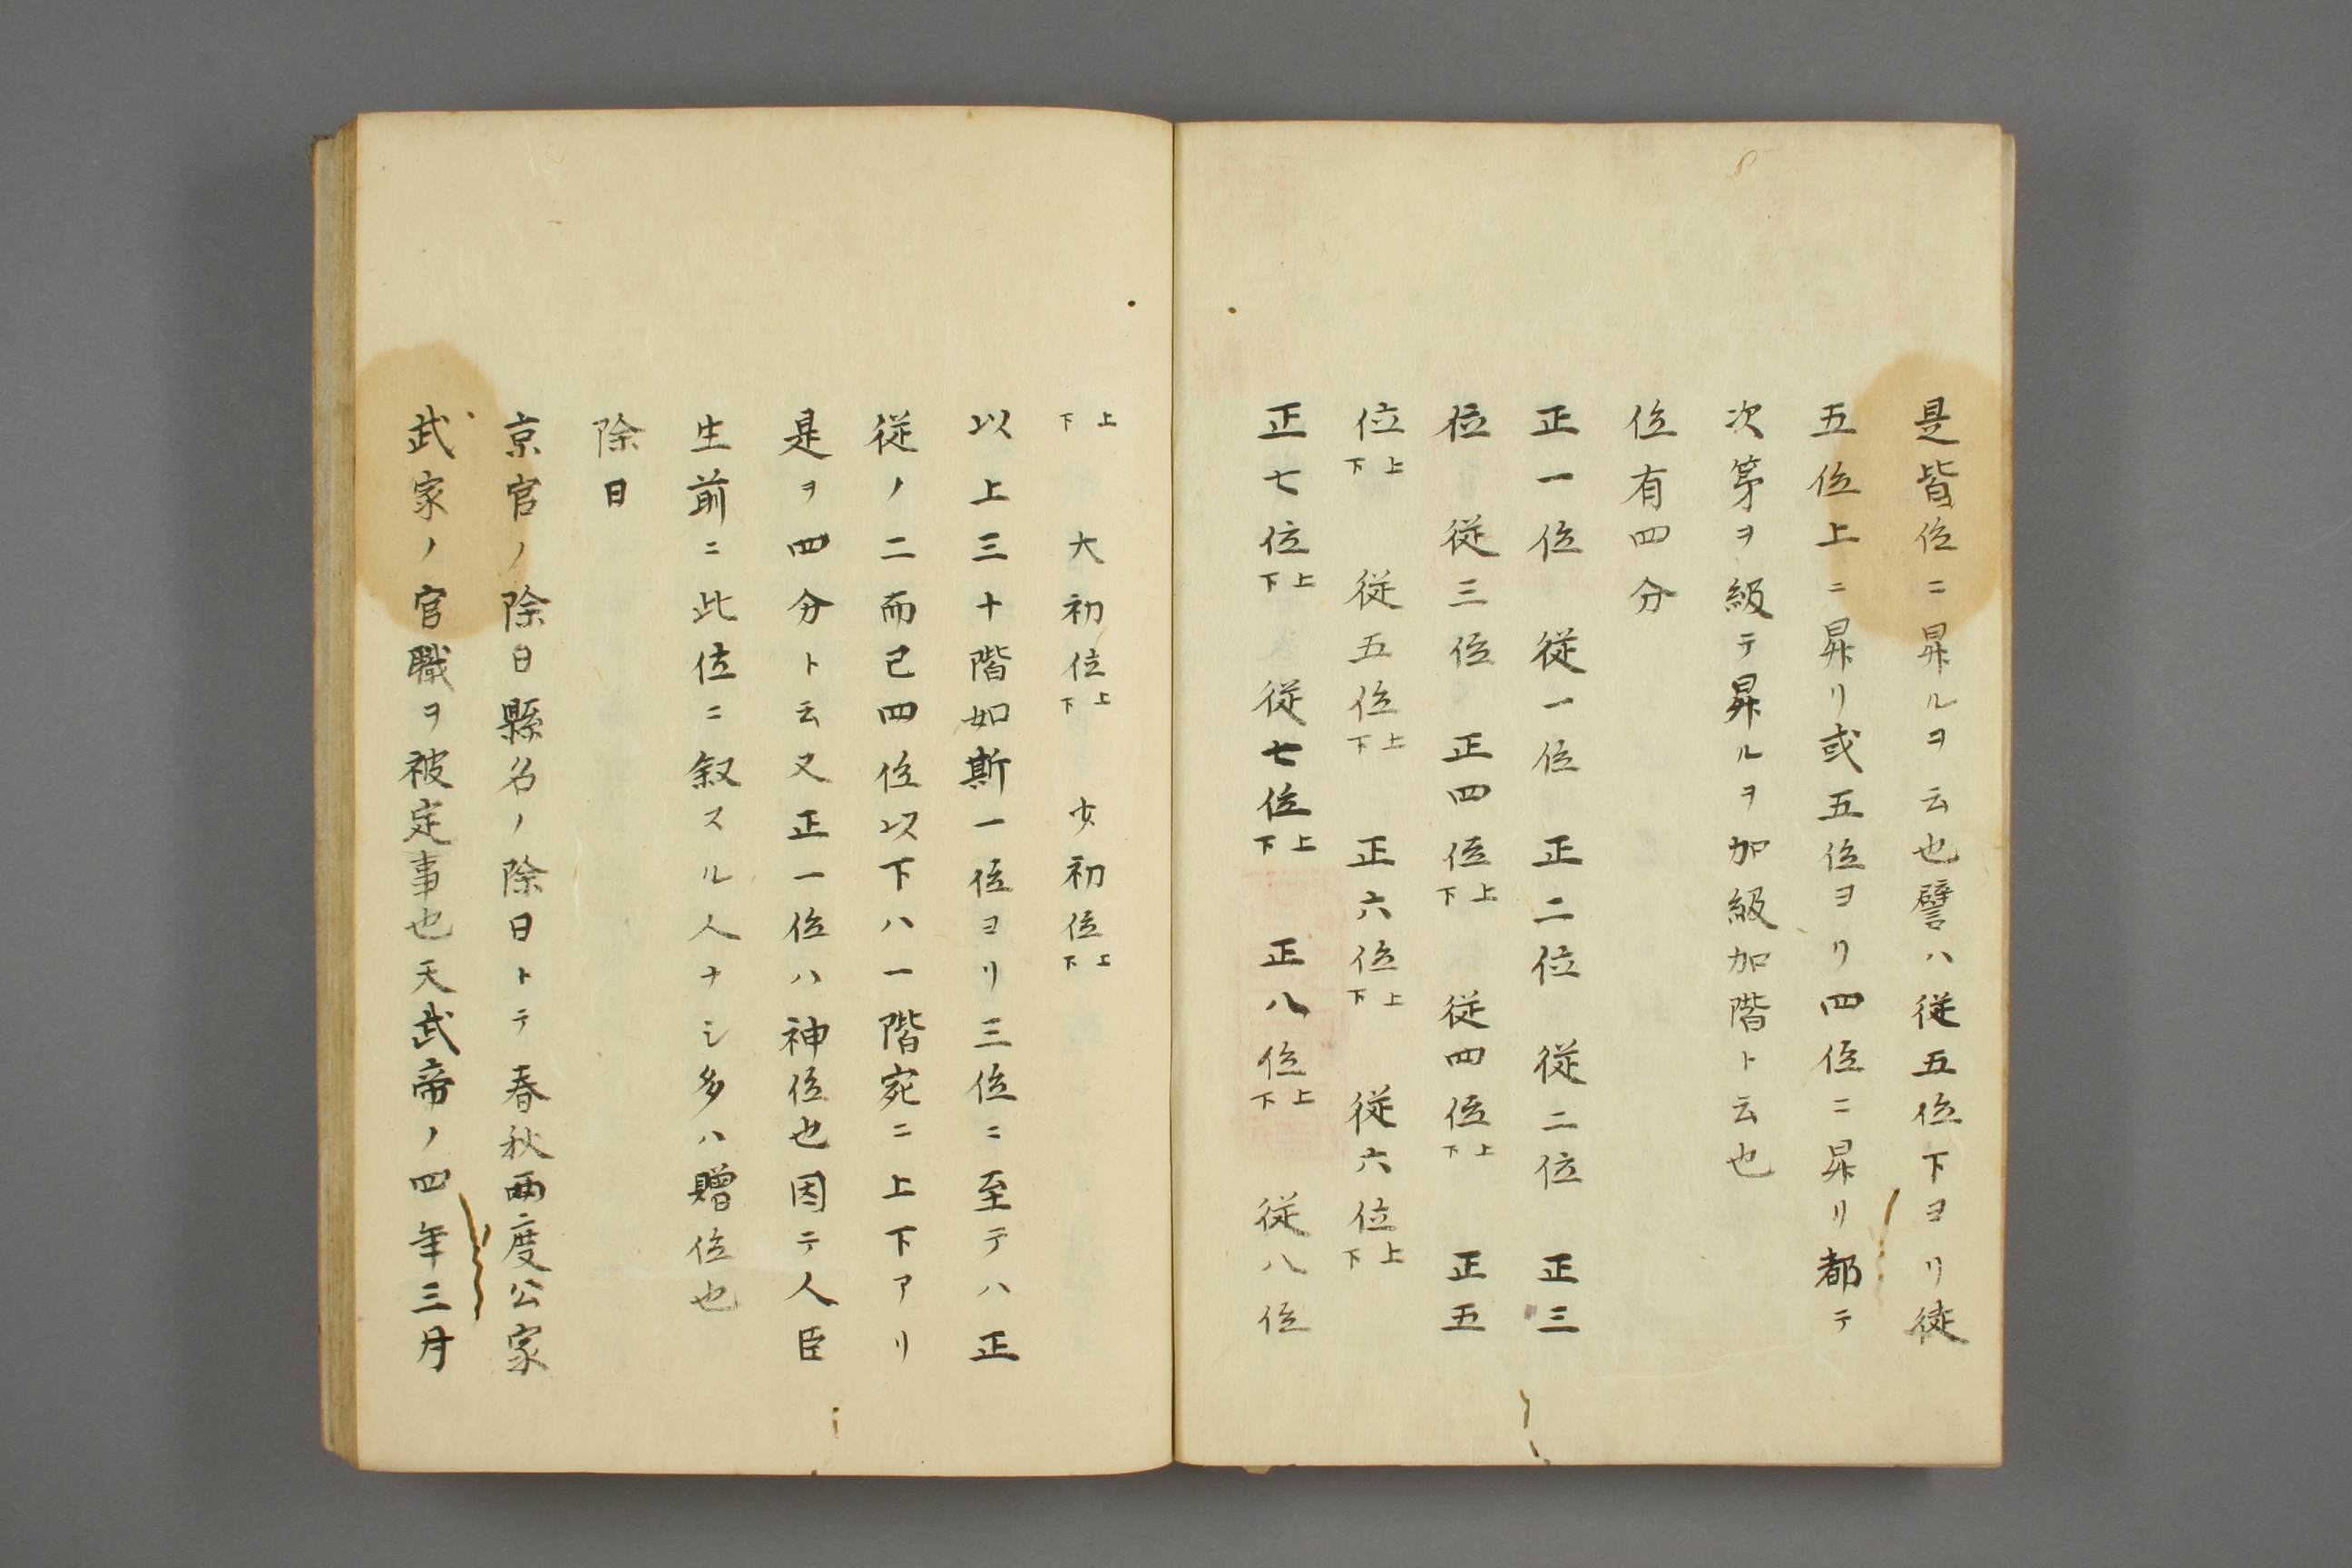 是皆位ニ昇ルヲ云也譬ハ従五位下ヨリ従
五位上ニ昇リ或五位ヨリ四位ニ昇リ都テ
次第ヲ級テ昇ルヲ加級加階ト云也
位有四分
正一位 従一位 正二位 従二位 正三
位 従三位 正四位上下 従四位上下 正五
位上下 従五位上下 正六位上下 従六位上下
正七位上下 従七位上下 正八位上下 従八位
上下 大初位上下 少初位上下
以上三十階如斯一位ヨリ三位ニ至テハ正
従ノ二而已四位以下ハ一階宛ニ上下アリ
是ヲ四分ト云又正一位ハ神位也因テ人臣
生前ニ此位ニ叙スル人ナシ多ハ贈位也
除日
京官ノ除日縣名ノ除日トテ春秋両度公家
武家ノ官職ヲ被定事也天武帝ノ四年三月